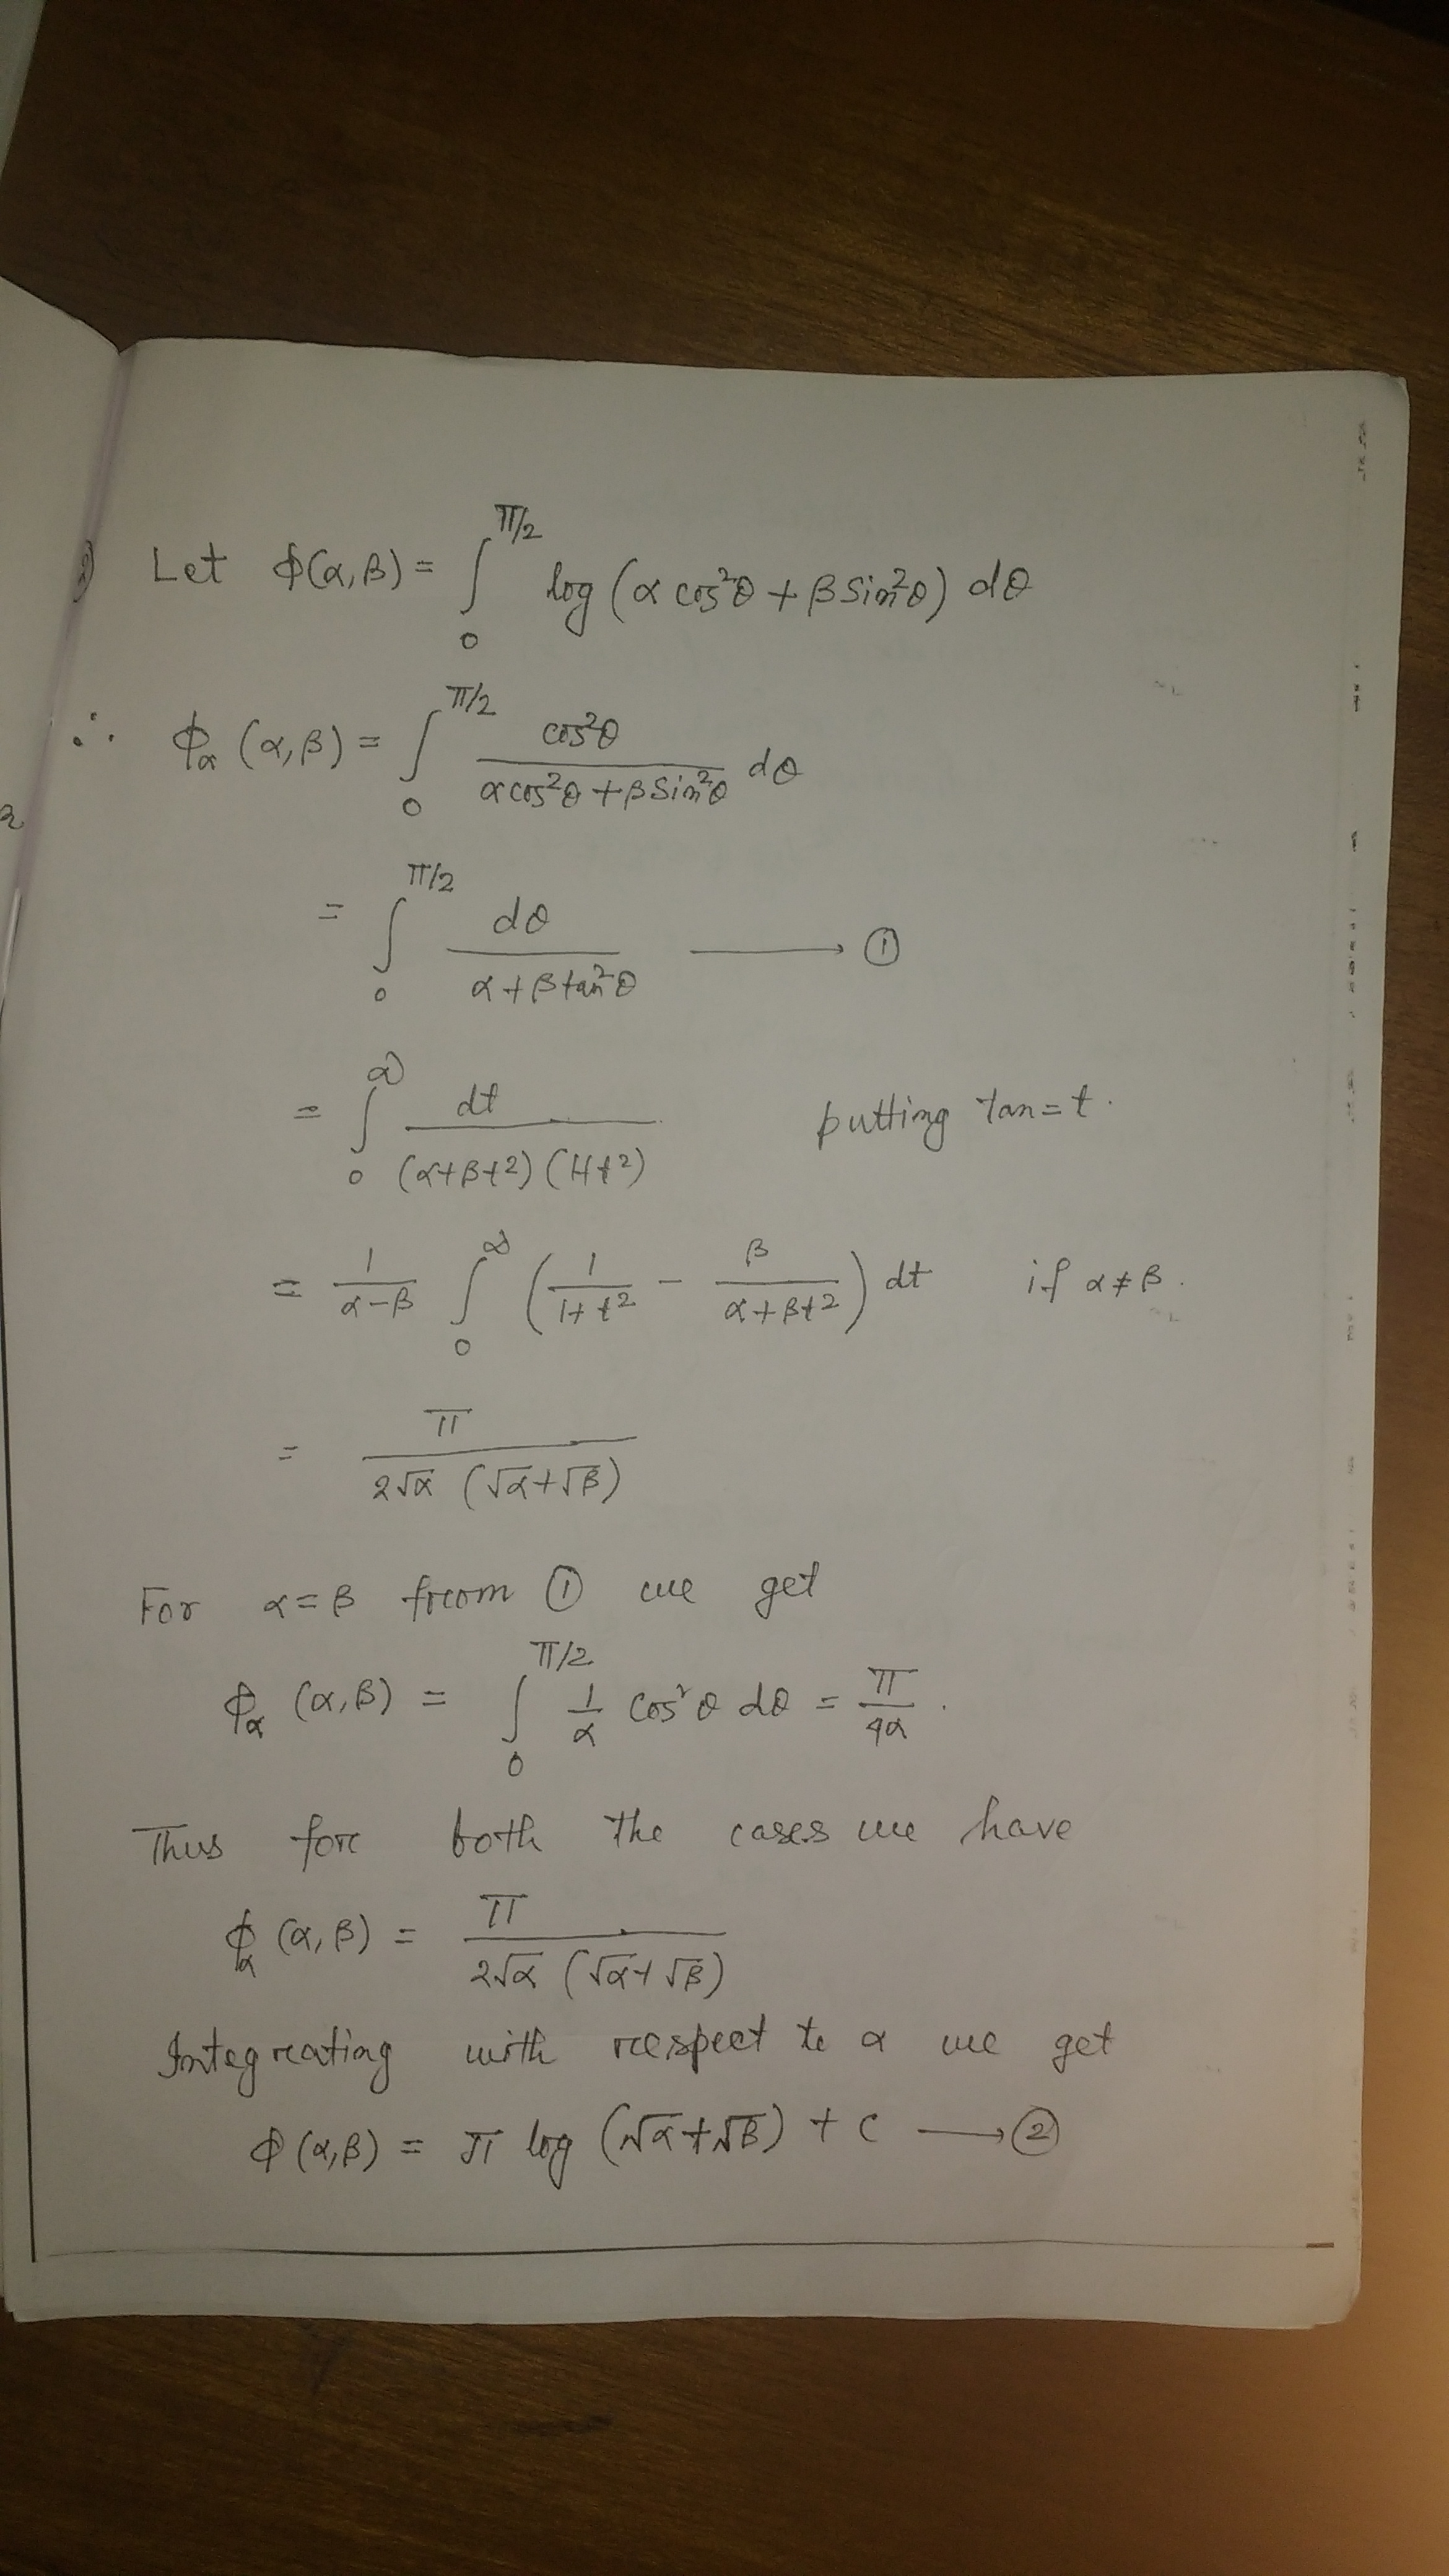 Let ϕ(α,β) = ∫₀^{π/2} log (α cos²θ + β sin²θ) dθ
∴ ϕ_α (α,β) = ∫₀^{π/2} cos²θ / (α cos²θ + β sin²θ) dθ
= ∫₀^{π/2} dθ / (α + β tan²θ) ⟶ ①
= ∫₀^∞ dt / ((α+βt²)(1+t²)) putting tan = t.
= 1/(α-β) ∫₀^∞ (1/(1+t²) - β/(α+βt²)) dt if α ≠ β.
= π / (2√α (√α+√β))
For α = β from ① we get
ϕ_α (α,β) = ∫₀^{π/2} 1/α cos²θ dθ = π/4α.
Thus for both the cases we have
ϕ_α (α,β) = π / (2√α (√α+√β))
Integrating with respect to α we get
ϕ (α,β) = π log (√α+√β) + c ⟶ ②